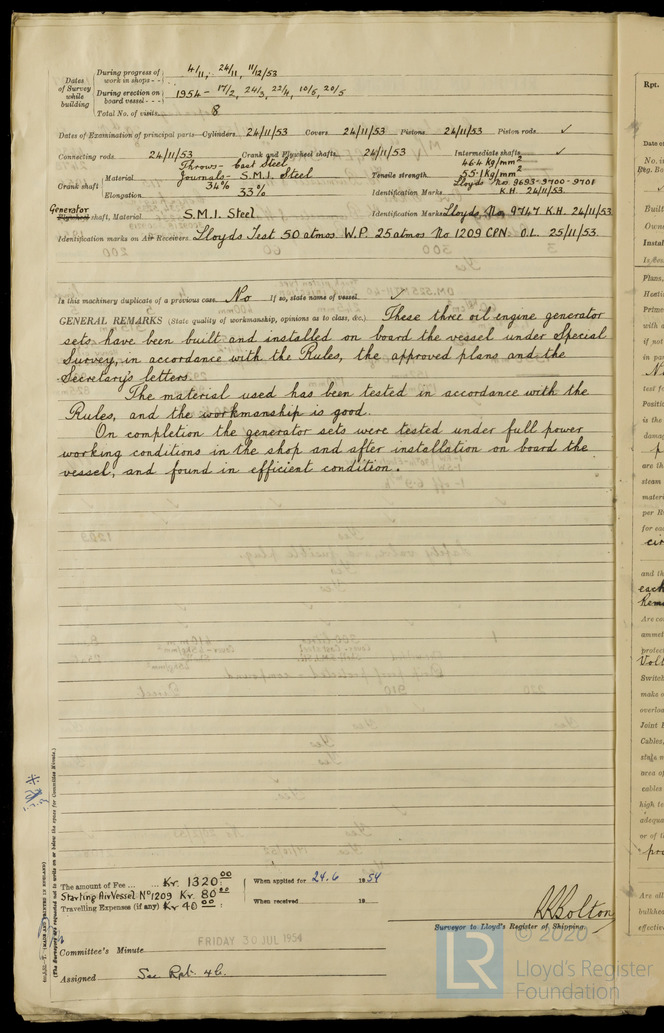 Dates of Survey while building
During progress of work in shops - - 4/11, 24/11, 11/12/53
During erection on board vessel - - - 1954 - 17/2, 24/3, 22/4, 10/5, 20/5
Total No. of visits 8
Dates of Examination of principal parts—Cylinders 24/11/53 Covers 24/11/53 Pistons 24/11/53 Piston rods ✓
Connecting rods 24/11/53 Crank and Flywheel shafts 24/11/53 Intermediate shafts ✓
Crank shaft Material Throws - Cast Steel Journals - S.M.I. Steel Tensile strength 46.4 kg/mm² 55.1 kg/mm²
Elongation 34% 33% Identification Marks Lloyds No. 9693-9700-9701 K.H. 24/11/53.
Generator Flywheel shaft, Material S.M.I. Steel Identification Marks Lloyds No. 9747 K.H. 24/11/53
Identification marks on Air Receivers Lloyds Test 50 atmos. W.P. 25 atmos No 1209 CPN. O.L. 25/11/53.
Is this machinery duplicate of a previous case No If so, state name of vessel ✓
GENERAL REMARKS (State quality of workmanship, opinions as to class, &c.) These three oil engine generator
sets have been built and installed on board the vessel under Special
Survey, in accordance with the Rules, the approved plans and the
Secretary's letters.
The material used has been tested in accordance with the
Rules, and the workmanship is good.
On completion the generator sets were tested under full power
working conditions in the shop and after installation on board the
vessel, and found in efficient condition.
The amount of Fee ... Kr. 1320.00 When applied for 24.6 1954
Starting Air Vessel No 1209 Kr. 80.00
Travelling Expenses (if any) Kr 40.00 : When received 19
RRBolton
Surveyor to Lloyd's Register of Shipping.
Committee's Minute FRIDAY 30 JUL 1954
Assigned See Rpt. 4b.
(The Surveyors are requested not to write on or below the space for Committee's Minute.)
© 2020
LR
Lloyd's Register
Foundation
Rpt.